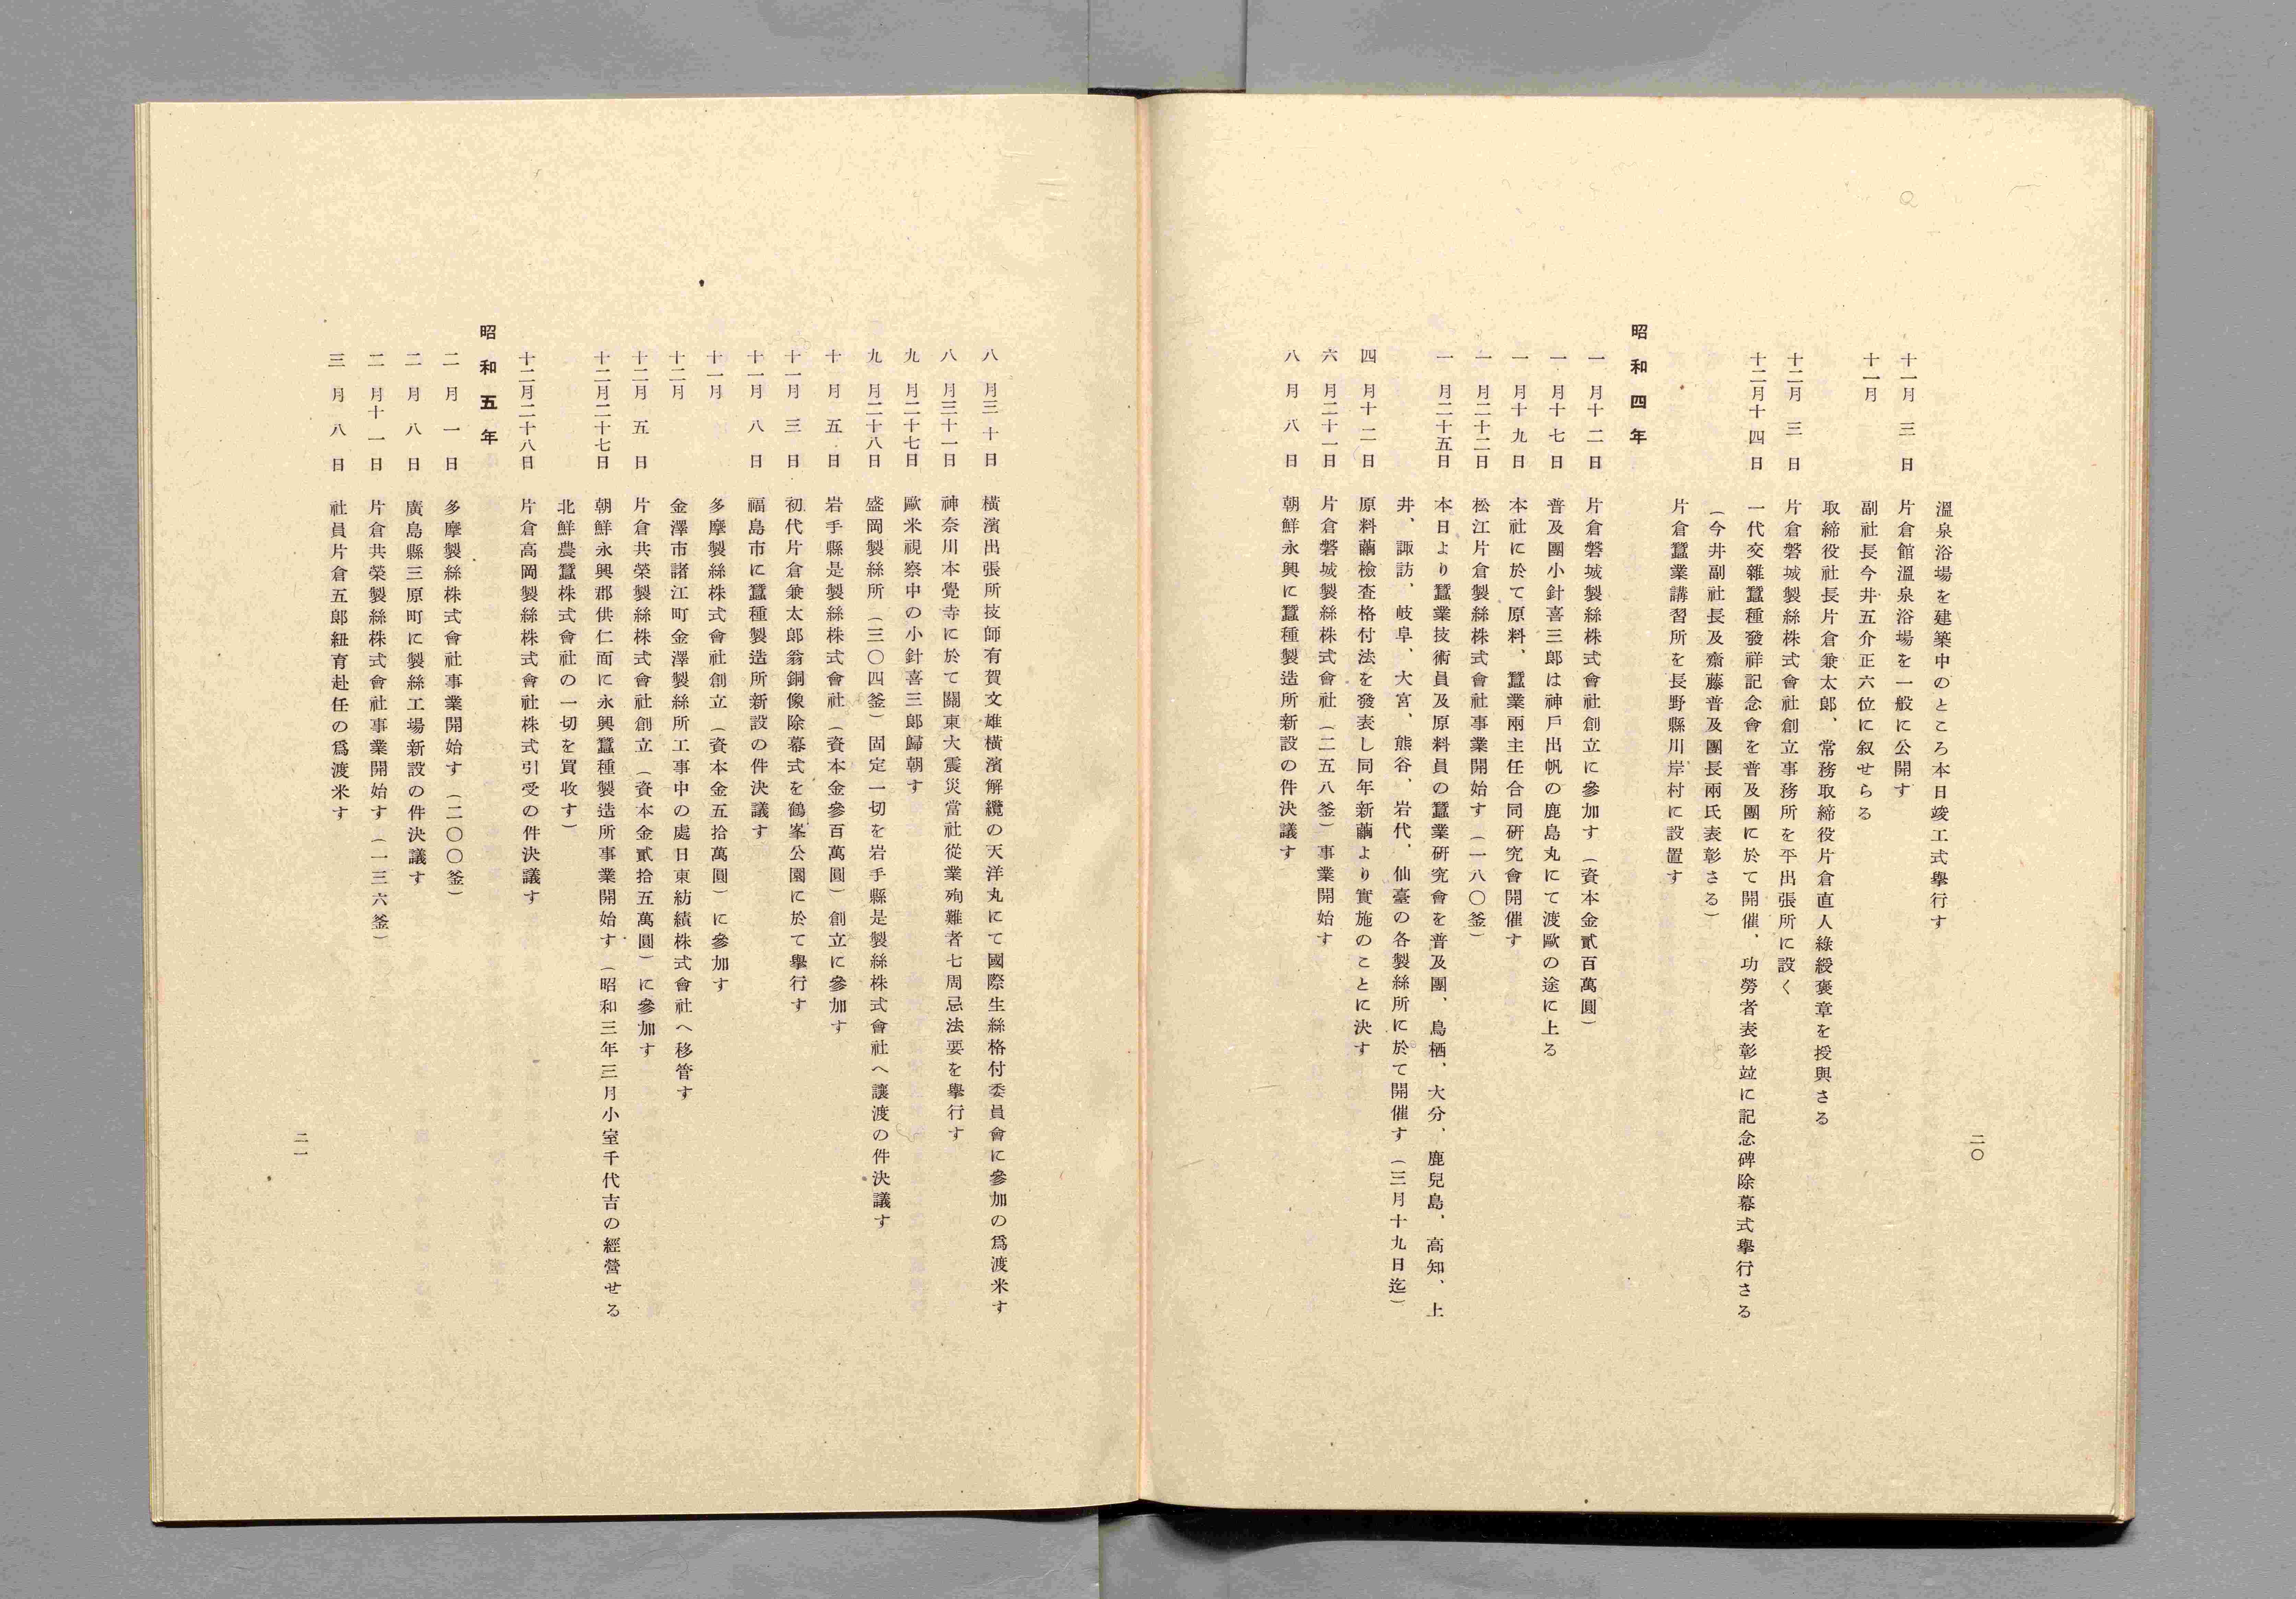 二〇
溫泉浴場を建築中のところ本日竣工式擧行す
十一月 三 日 片倉館溫泉浴場を一般に公開す
十一月 副社長今井五介正六位に叙せらる
取締役社長片倉兼太郎、常務取締役片倉直人綠綬褒章を授與さる
十二月 三 日 片倉磐城製絲株式會社創立事務所を平出張所に設く
十二月十四日 一代交雜蠶種發祥記念會を普及團に於て開催、功勞者表彰竝に記念碑除幕式擧行さる
（今井副社長及齋藤普及團長兩氏表彰さる）
片倉蠶業講習所を長野縣川岸村に設置す
昭和四年
一 月十二日 片倉磐城製絲株式會社創立に參加す（資本金貳百萬圓）
一 月十七日 普及團小針喜三郎は神戶出帆の鹿島丸にて渡歐の途に上る
一 月十九日 本社に於て原料、蠶業兩主任合同硏究會開催す
一 月二十二日 松江片倉製絲株式會社事業開始す（一八〇釜）
一 月二十五日 本日より蠶業技術員及原料員の蠶業硏究會を普及團、鳥栖、大分、鹿兒島、高知、上
井、諏訪、岐阜、大宮、熊谷、岩代、仙臺の各製絲所に於て開催す（三月十九日迄）
四 月十二日 原料繭檢査格付法を發表し同年新繭より實施のことに決す
六 月二十一日 片倉磐城製絲株式會社（二五八釜）事業開始す
八 月 八 日 朝鮮永興に蠶種製造所新設の件決議す
八 月三十日 橫濱出張所技師有賀文雄橫濱解纜の天洋丸にて國際生絲格付委員會に參加の爲渡米す
八 月三十一日 神奈川本覺寺に於て關東大震災當社從業殉難者七周忌法要を擧行す
九 月二十七日 歐米視察中の小針喜三郎歸朝す
九 月二十八日 盛岡製絲所（三〇四釜）固定一切を岩手縣是製絲株式會社へ讓渡の件決議す
十 月 五 日 岩手縣是製絲株式會社（資本金參百萬圓）創立に參加す
十一月 三 日 初代片倉兼太郎翁銅像除幕式を鶴峯公園に於て擧行す
十一月 八 日 福島市に蠶種製造所新設の件決議す
十一月 多摩製絲株式會社創立（資本金五拾萬圓）に參加す
十二月 金澤市諸江町金澤製絲所工事中の處日東紡績株式會社へ移管す
十二月 五 日 片倉共榮製絲株式會社創立（資本金貳拾五萬圓）に參加す
十二月二十七日 朝鮮永興郡供仁面に永興蠶種製造所事業開始す（昭和三年三月小室千代吉の經營せる
北鮮農蠶株式會社の一切を買收す）
十二月二十八日 片倉高岡製絲株式會社株式引受の件決議す
昭和五年
二 月 一 日 多摩製絲株式會社事業開始す（二〇〇釜）
二 月 八 日 廣島縣三原町に製絲工場新設の件決議す
二 月十一日 片倉共榮製絲株式會社事業開始す（一三六釜）
三 月 八 日 社員片倉五郎紐育赴任の爲渡米す
二一